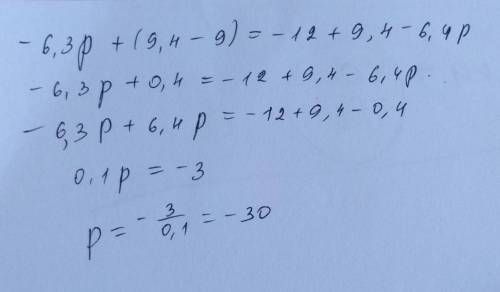 - 6,3p + (9,4 - 9) = -12 + 9,4 - 6,4p
- 6,3p + 0,4 = -12 + 9,4 - 6,4p.
- 6,3p + 6,4p = -12 + 9,4 - 0,4
0,1p = -3
p = - 3/0,1 = -30